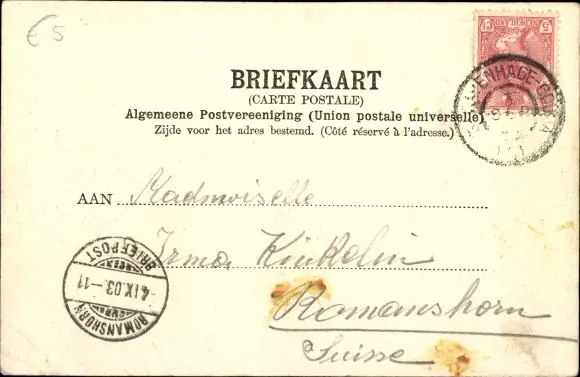 €5
NEDERLAND
5
BRIEFKAART
(CARTE POSTALE)
Algemeene Postvereeniging (Union postale universelle)
Zijde voor het adres bestemd. (Côté réservé à l'adresse.)
AAN Madmoiselle
Irma Kinkelin
Romanshorn
Suisse
BRIEFPOST
4.IX.03-11
ROMANSHORN